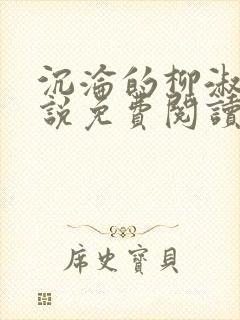 沉淪的柳淑
說免費閱讀
席史寶貝